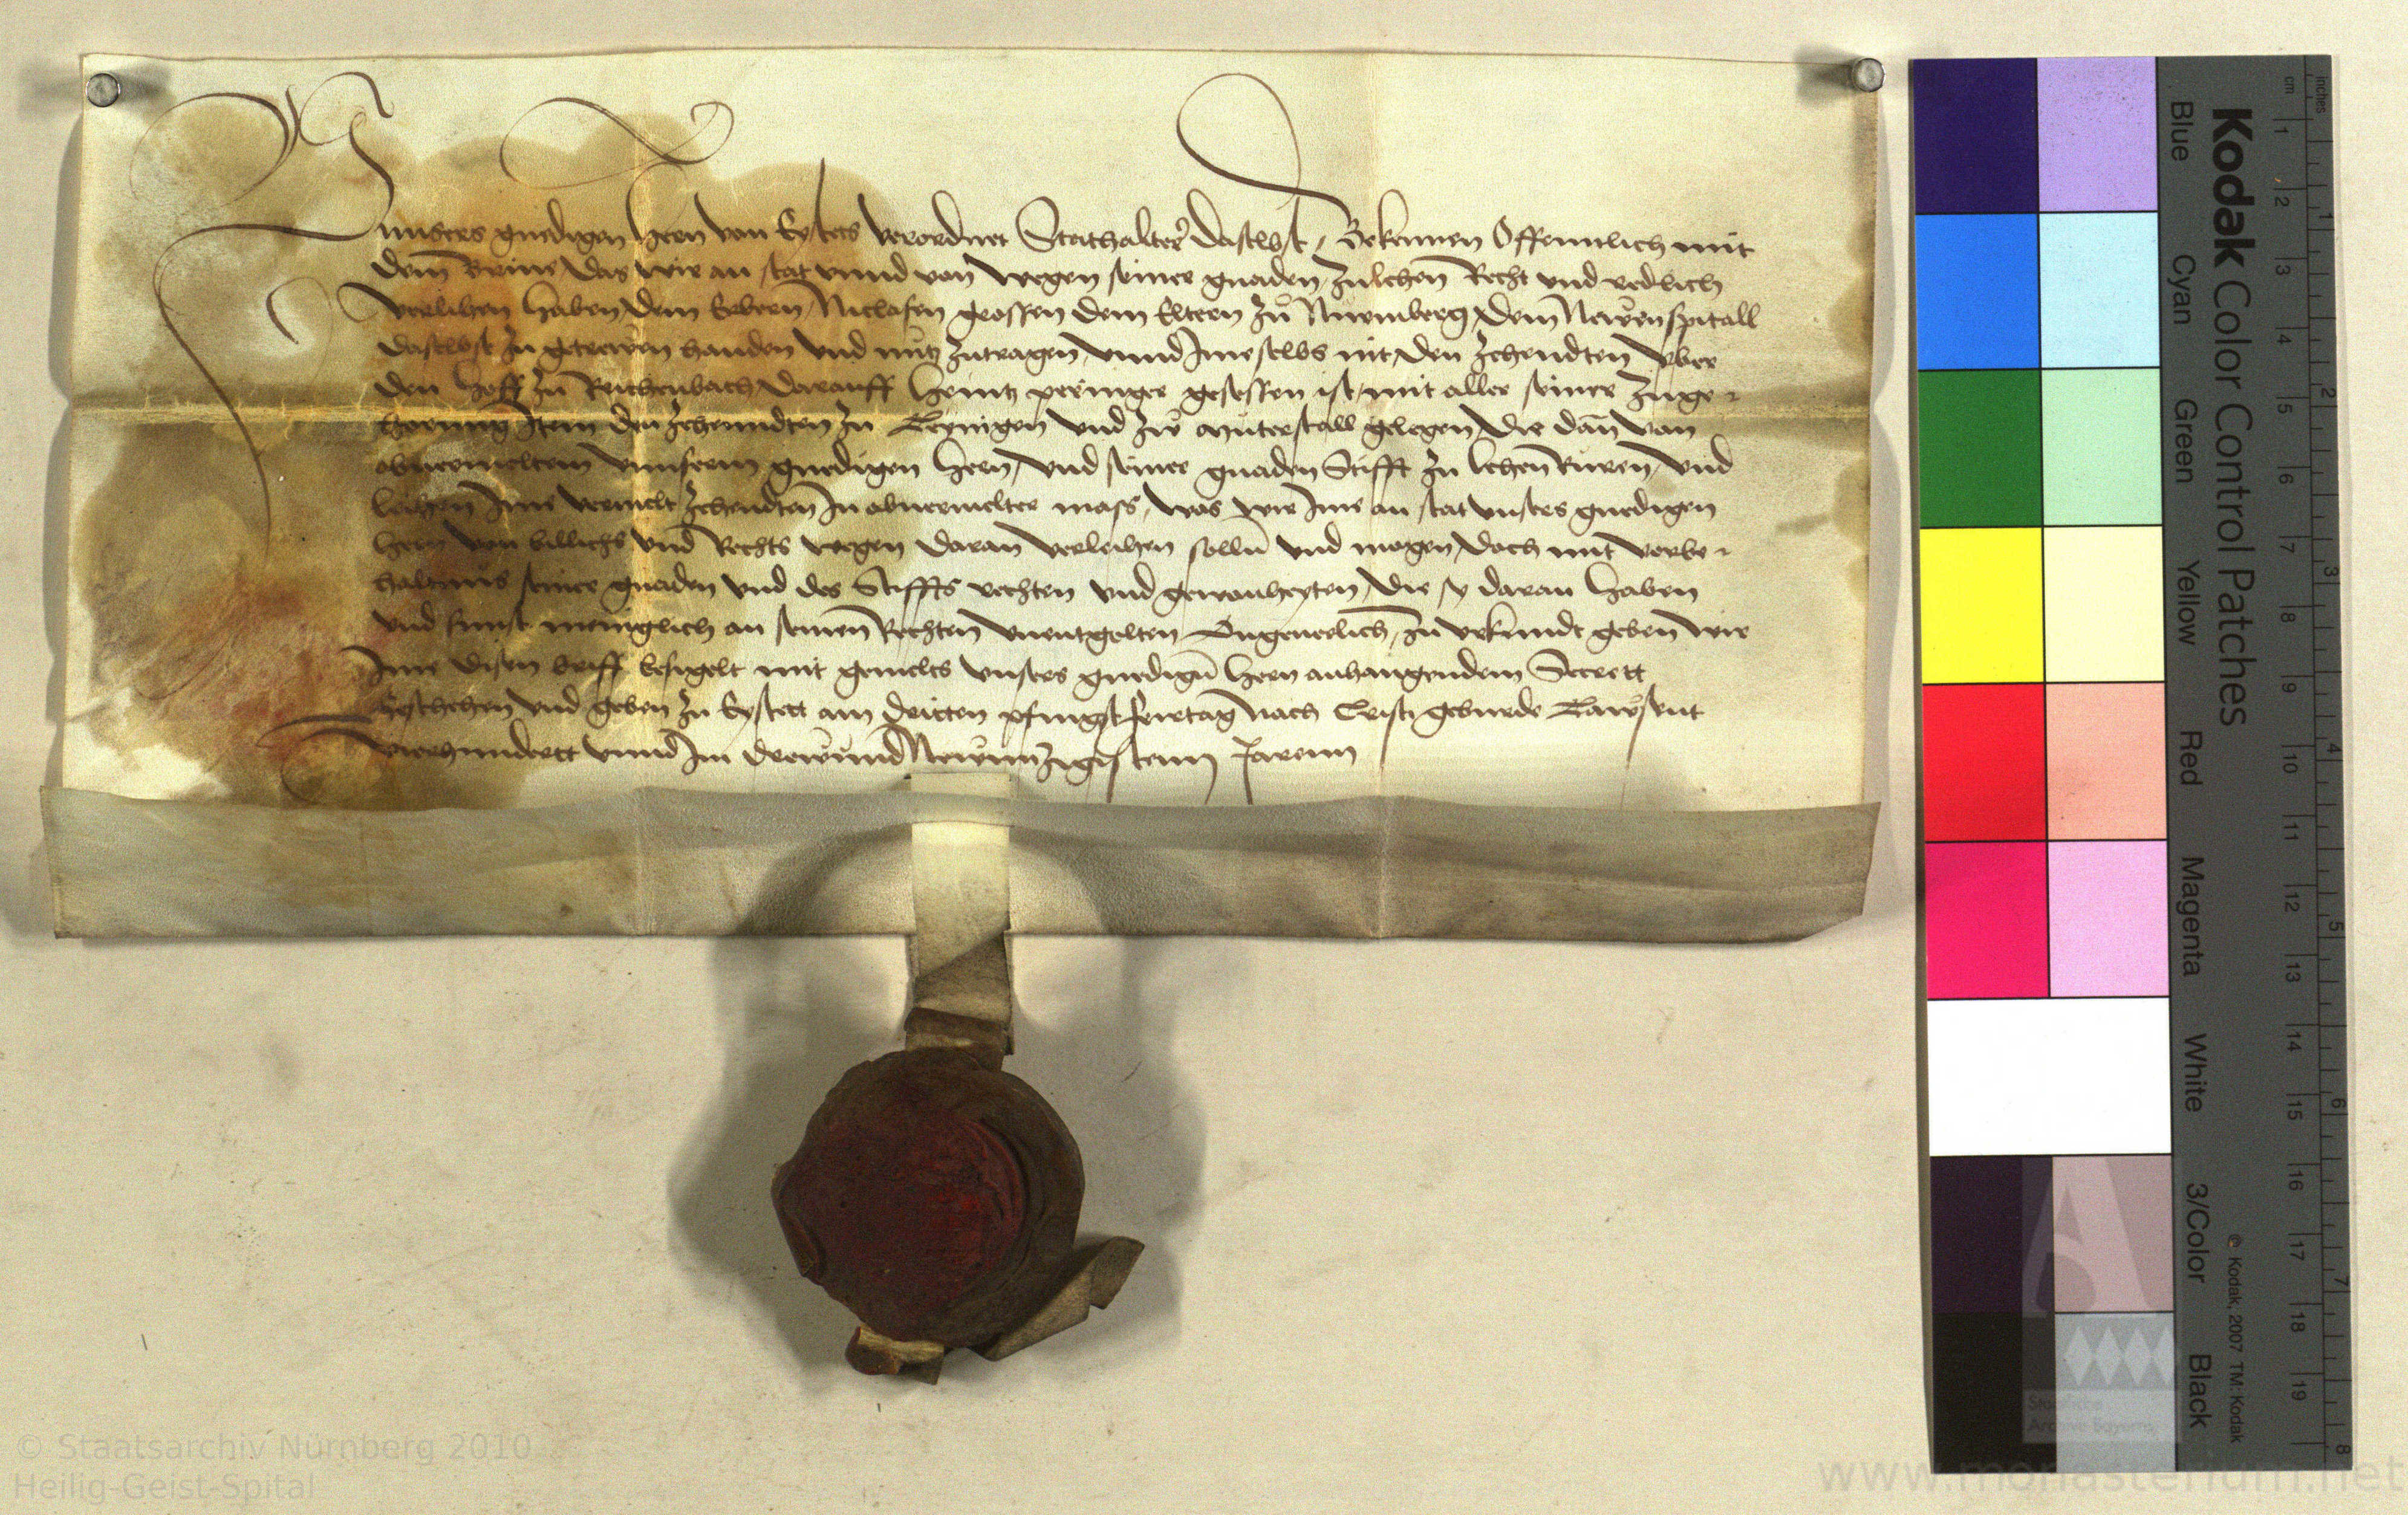 Wir unsers gnedigen Hern von Eystets verordnet Stathalter daselbst / Bekennen Offennlich mit
dem brine das wir an stat vnnd von wegen seiner gnaden zulehen Recht vnd redlich
verlihen haben dem Erbern Niclasen grossen dem Eltern zů Nuremberg dem Newen spitall
daselbst zu getrewen handen vnd nutz zutragen vnnd Ime selbs nit den zehendten vber
den Hoff zu Reichenbach darauff Heintz peringer gesessen ist mit aller seiner zuge-
horung Item den zehenndten zu und zů Muterstall gelegen die dan̄ von
obuermeltem vnnserm gnedigen Hern vnd seiner gnaden Stifft zu lehen Ruren vnd
leihen Ime vermelt zehendten In obuermelter mass, was wir Ime an stat vnsers gnedigen
Hern von billichs vnd Rechts wegen daran verleihen solln̄ vnd mogen doch mit vorbe-
haltnus seiner gnaden vnd des Stiffts rechten vnd gewonheyten die sy daran haben
vnd sunst meniglich an seinen Rechten vnentgolten Ongeuerlich, zu vrkundt geben wir
Ime disen briff besigelt mit gemelts vnsers gnedign̄ Hern anhangendem Secrett
Geschehen vnd geben zu Eystett am dritten pfingstfeirtag nach Cristi geburde Tawsent
vierhundertt vnnd Im drewundNewnnzigistenn Jarenn
Kodak Color Control Patches
Blue Cyan Green Yellow Red Magenta White 3/Color Black
© Kodak, 2007 TM: Kodak
inches
cm
1 2 3 4 5 6 7 8 9 10 11 12 13 14 15 16 17 18 19
1 2 3 4 5 6 7 8
Staatliche
Archive Bayerns
© Staatsarchiv Nürnberg 2010
Heilig-Geist-Spital
www.monasterium.net